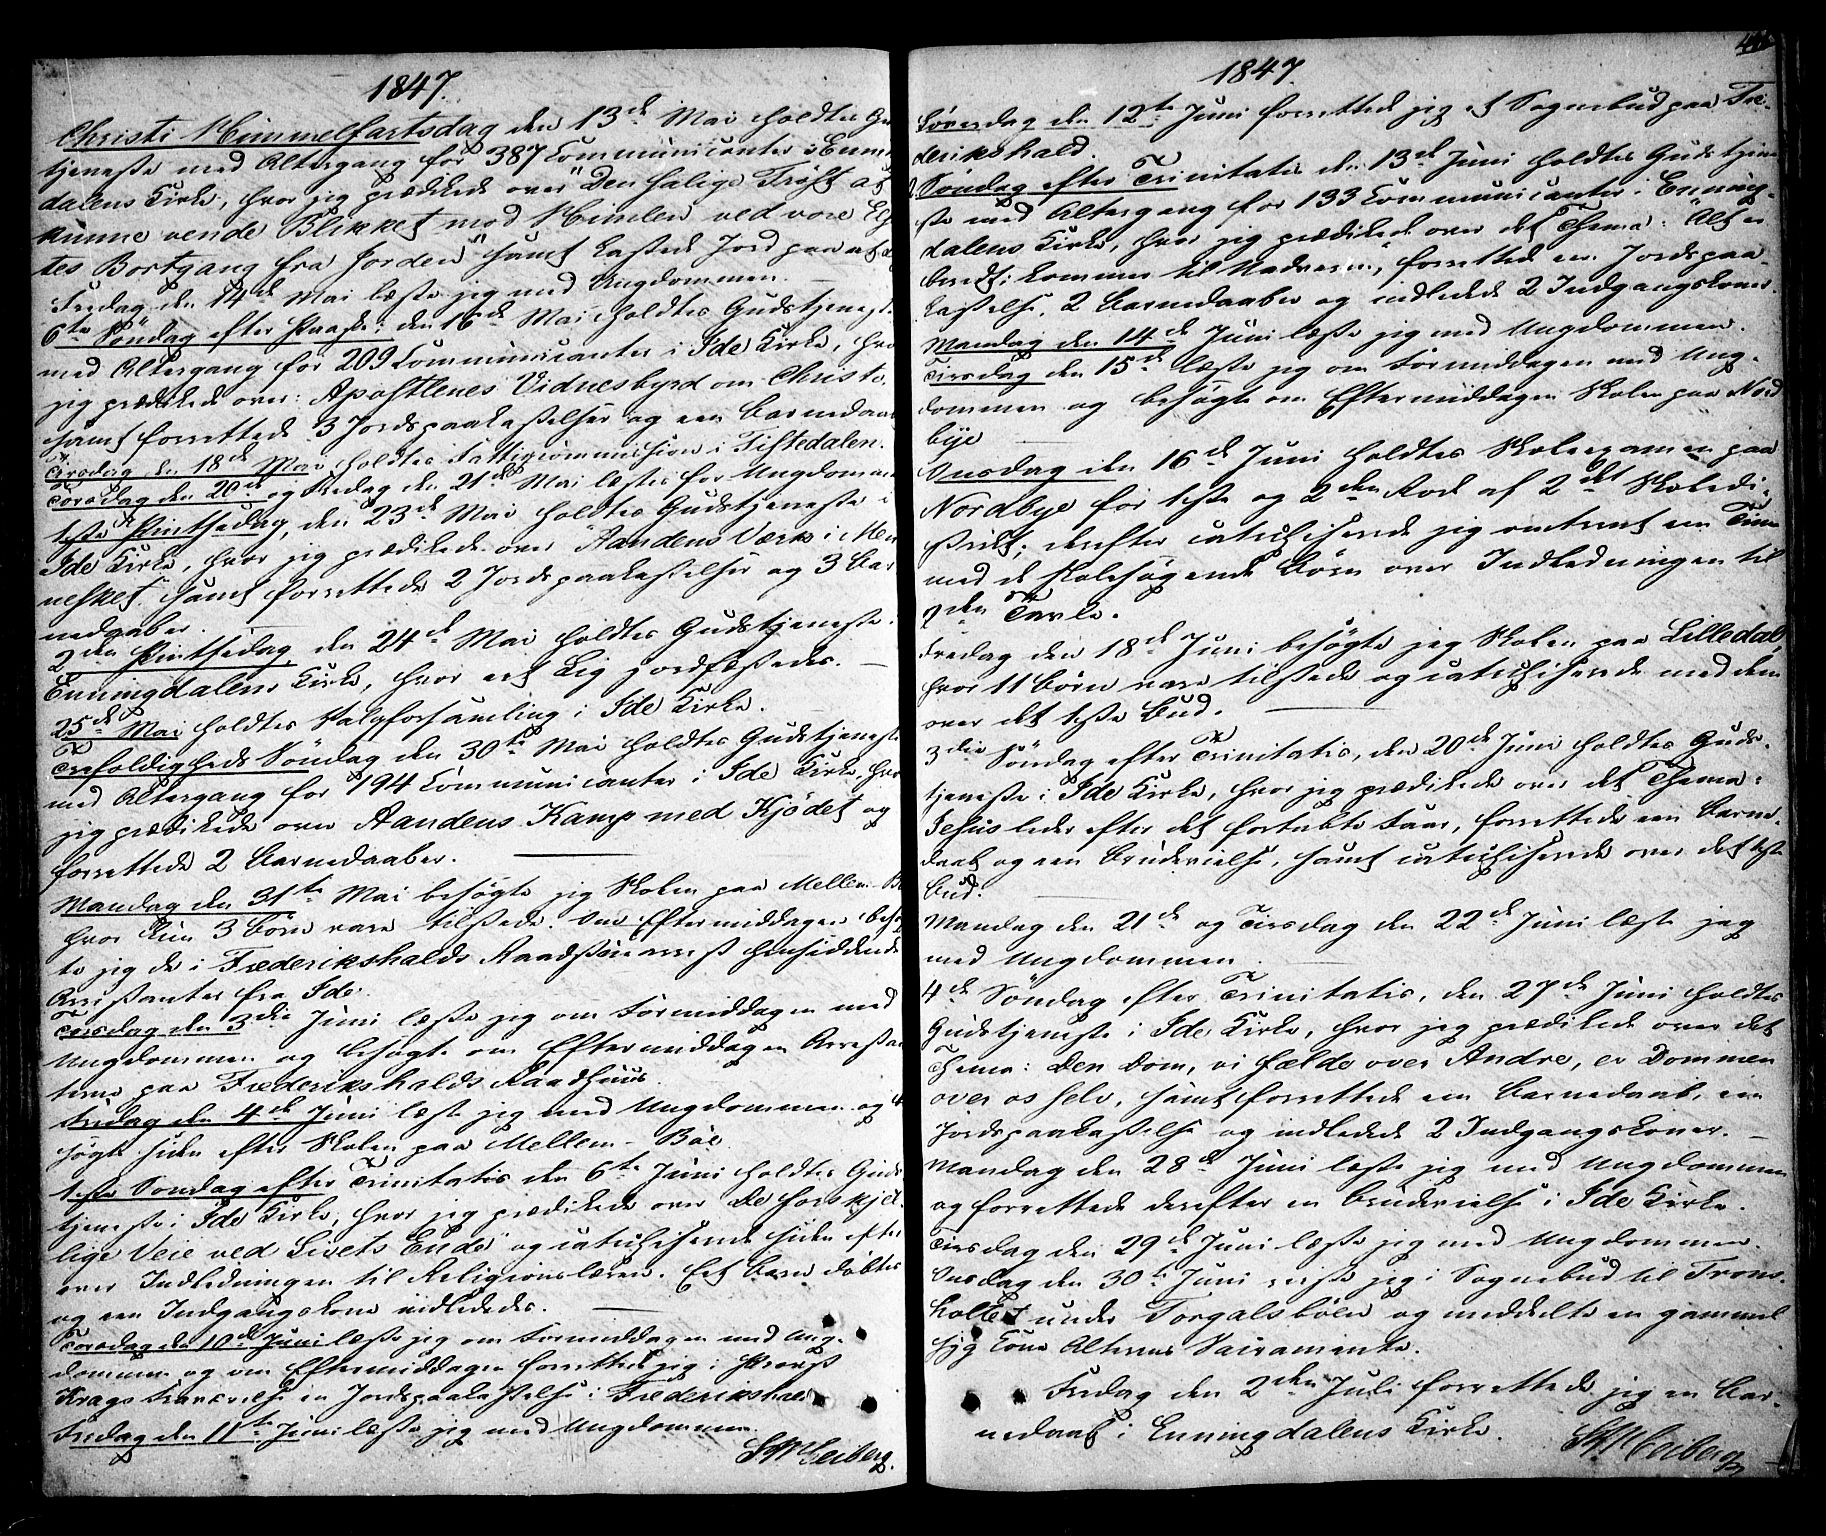 1847.
Christi Himmelfartsdag den 13de Mai holdtes Gu
tjeneste med Altergang for 387 Communicanter i Enni
dalens Kirke, hvor jeg prædikede over "Den salige Trøst at
kunne vende Blikket mod Himlen ved vore El
tes Bortgang fra Jorden" samt kastede Jord paa et
Fredag den 14de Mai læste jeg med Ungdommen.
6te Söndag efter Paaske, den 16de Mai holdtes Gudstjenest
med Altergang for 209 Communicanter i Ide Kirke, hvo
jeg prædikede over: Apostlenes Vidnesbyrd om Christo,
samt forrettede 3 Jordspaakastelser og een Barnedaab
Tirsdag den 18de Mai holdtes Fattigcommission i Tistedalen.
Torsdag den 20de og Fredag den 21de Mai læstes for Ungdommen
1ste Pintsedag, den 23de Mai holdtes Gudstjeneste i
Ide Kirke, hvor jeg prædikede over "Aandens Værk i Men
nesket" samt forrettede 2 Jordspaakastelser og 3 Bar
nedaaber.
2den Pintsedag, den 24de Mai holdtes Gudstjeneste i
Enningdalens Kirke, hvor eet Lig jordfæstedes. —
25de Mai holdtes Valgforsamling i Ide Kirke.
Trefoldigheds Söndag den 30te Mai holdtes Gudstjeneste
med Altergang for 194 Communicanter i Ide Kirke, hvor
jeg prædikede over Aandens Kamp med Kjödet og
forrettede 2 Barnedaaber. —
Mandag den 31te Mai besögte jeg Skolen paa Mellem-B
hvor kun 3 Börn vare tilstede. Om Eftermiddagen besög
te jeg de i Frederikshalds Raadstuearrest hensiddende
Arrestanter fra Ide.
Torsdag den 3die Juni læste jeg om Formiddagen med
Ungdommen og besögte om Eftermiddagen Arrestan
terne paa Frederikshalds Raadhuus.
Fredag den 4de Juni læste jeg med Ungdommen og
sögte siden efter Skolen paa Mellem-Böe
1ste Söndag efter Trinitatis den 6te Juni holdtes Guds
tjeneste i Ide Kirke, hvor jeg prædikede over "De forskjel
lige Veie ved Livets Ende" og catechiserede siden efter
over Indledningen til Religionslæren. Eet Barn döbtes
og een Indgangskone indlededes. —
Torsdag den 10de Juni læste jeg om Formiddagen med Ung-
dommen og om Eftermiddagen forrettede jeg i Provst
Krags Fraværelse en Jordspaakastelse i Frederikshald
Fredag den 11te Juni læste jeg med Ungdommen.
Heiberg.
1847.
Löverdag den 12te Juni forrettede jeg et Sognebud paa Fre-
derikshald.
Söndag efter Trinitatis den 13de Juni holdtes Gudstjene
ste med Altergang for 133 Communicanter i Enning-
dalens Kirke, hvor jeg prædikede over det Thema: "Alt er
beredt; kommer til Nadveren", forrettede en Jordspaa-
kastelse, 2 Barnedaaber og indledede 2 Indgangskoner.
Mandag den 14de Juni læste jeg med Ungdommen.
Tirsdag den 15de læste jeg om Formiddagen med Ung-
dommen og besögte om Eftermiddagen Skolen paa Nord
bye —
Onsdag den 16de Juni holdtes Skoleexamen paa
Nordbye for 1ste og 2den Rode af 2det Skoledi-
strikt; derefter catechiserede jeg omtrent een Time
med de skolesögende Börn over Indledningen til
2den Tavle.
Fredag den 18de Juni besögte jeg Skolen paa Lilledal,
hvor 11 Börn vare tilstede og catechiserede med dem
over det 1ste Bud. —
3die Söndag efter Trinitatis, den 20de Juni holdtes Guds-
tjeneste i Ide Kirke, hvor jeg prædikede over det Thema:
Jesus leder efter det fortabte Faar, forrettede een Barne-
daab og een Brudevielse, samt catechiserede over det 1ste
Bud. —
Mandag den 21de og Tirsdag den 22de Juni læste jeg
med Ungdommen.
4de Söndag efter Trinitatis, den 27de Juni holdtes
Gudstjeneste i Ide Kirke, hvor jeg prædikede over det
Thema: Den Dom, vi fælde over Andre, er Dommen
over os selv, samt forrettede een Barnedaab, een
Jordspaakastelse og indledede 2 Indgangskoner. —
Mandag den 28de Juni læste jeg med Ungdommen
og forrettede derefter en Brudevielse i Ide Kirke.
Tirsdag den 29de Juni læste jeg med Ungdommen.
Onsdag den 30te Juni reiste jeg i Sognebud til Trons-
holtet under Torgalsböen og meddelte en gammel
syg Kone Alterens Sacramente.
Fredag den 2den Juli forrettede jeg en Bar-
nedaab i Enningdalens Kirke.
Heiberg